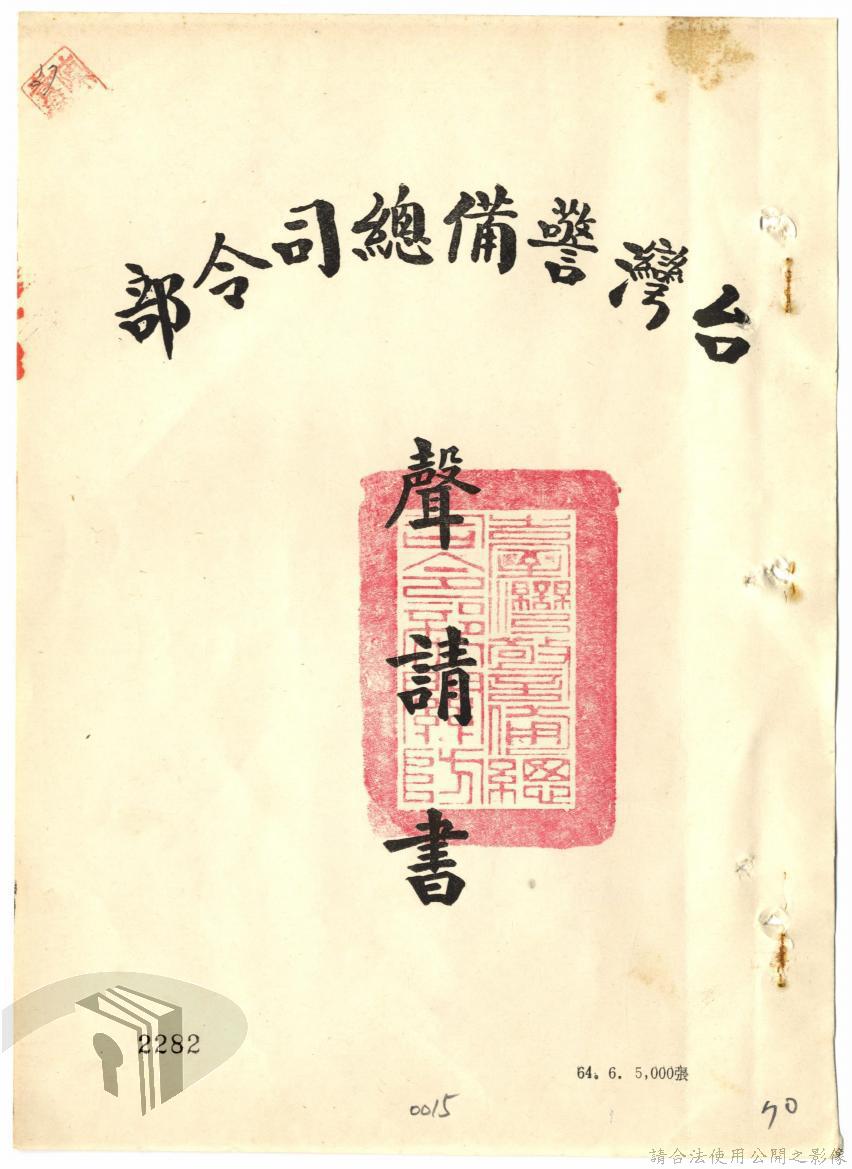 台灣警備總司令部
聲請書
臺灣警備總
司令部關防
2282
64. 6. 5,000張
0015
70
請合法使用公開之影像